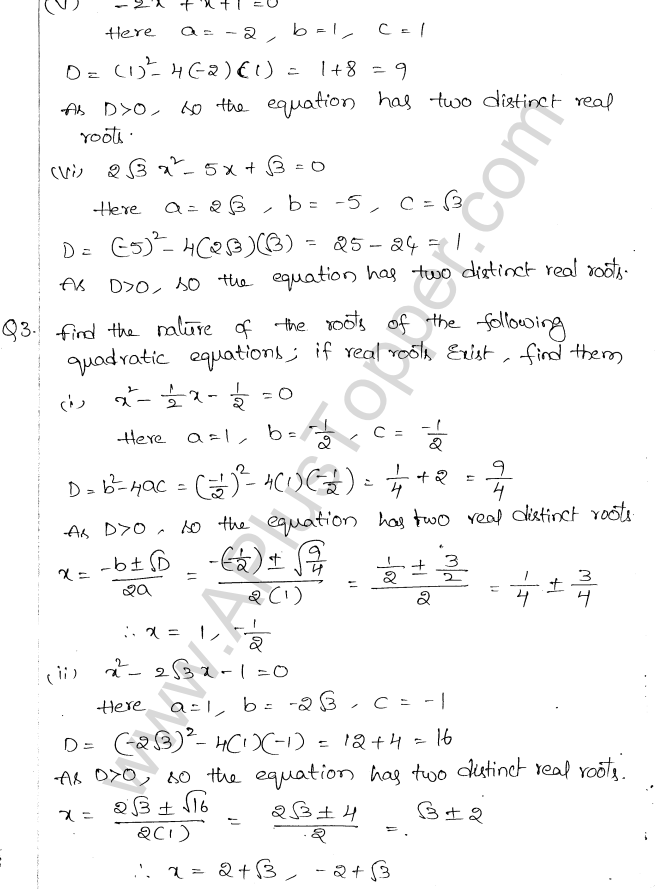 (v) -2x² + x + 1 = 0
Here a = -2, b = 1, c = 1
D = (1)² - 4(-2)(1) = 1 + 8 = 9
As D>0, so the equation has two distinct real
roots.
(vi) 2√3 x² - 5x + √3 = 0
Here a = 2√3, b = -5, c = √3
D = (-5)² - 4(2√3)(√3) = 25 - 24 = 1
As D>0, so the equation has two distinct real roots.
Q3. find the nature of the roots of the following
quadratic equations; if real roots exist, find them
(i) x² - 1/2 x - 1/2 = 0
Here a = 1, b = -1/2, c = -1/2
D = b² - 4ac = (-1/2)² - 4(1)(-1/2) = 1/4 + 2 = 9/4
As D>0, so the equation has two real distinct roots
x = (-b ± √D)/2a = (-(-1/2) ± √(9/4))/2(1) = (1/2 ± 3/2)/2 = 1/4 ± 3/4
∴ x = 1, -1/2
(ii) x² - 2√3x - 1 = 0
Here a = 1, b = -2√3, c = -1
D = (-2√3)² - 4(1)(-1) = 12 + 4 = 16
As D>0, so the equation has two distinct real roots.
x = (2√3 ± √16)/2(1) = (2√3 ± 4)/2 = √3 ± 2
∴ x = 2 + √3, -2 + √3
www.APlusTopper.com